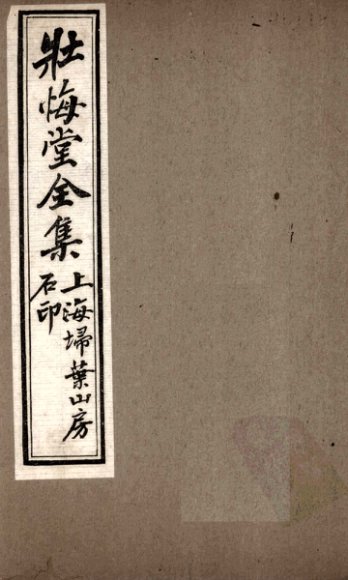 壯悔堂全集
上海埽葉山房
石印